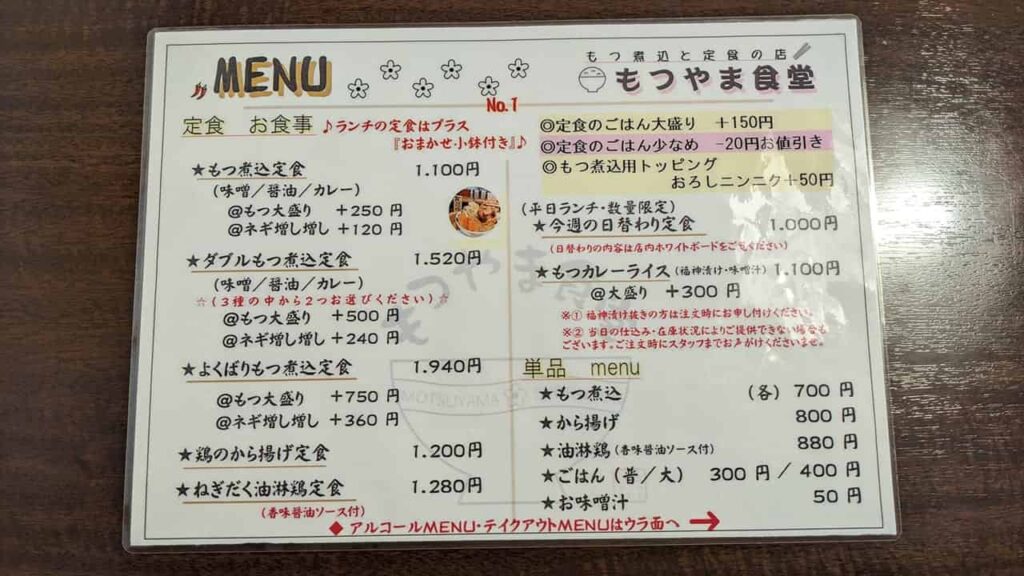 MENU
もつ煮込と定食の店
もつやま食堂
No.1
定食 お食事
♪ランチの定食はプラス
『おまかせ小鉢付き』♪
★もつ煮込定食 1.100円
(味噌／醤油／カレー)
@もつ大盛り +250 円
@ネギ増し増し +120 円
★ダブルもつ煮込定食 1.520円
(味噌／醤油／カレー)
☆(3種の中から2つお選びください)☆
@もつ大盛り +500 円
@ネギ増し増し +240 円
★よくばりもつ煮込定食 1.940円
@もつ大盛り +750 円
@ネギ増し増し +360 円
★鶏のから揚げ定食 1.200円
★ねぎだく油淋鶏定食 1.280円
(香味醤油ソース付)
◎定食のごはん大盛り +150円
◎定食のごはん少なめ -20円お値引き
◎もつ煮込用トッピング
おろしニンニク+50円
(平日ランチ・数量限定)
★今週の日替わり定食 1.000円
(日替わりの内容は店内ホワイトボードをご覧ください)
★もつカレーライス(福神漬け・味噌汁) 1.100円
@大盛り +300 円
※① 福神漬け抜きの方は注文時にお申し付けください。
※② 当日の仕込み・在庫状況によりご提供できない場合も
ございます。ご注文時にスタッフまでお声がけくださいませ。
単品 menu
★もつ煮込 (各) 700 円
★から揚げ 800 円
★油淋鶏(香味醤油ソース付) 880 円
★ごはん (普／大) 300 円 / 400 円
★お味噌汁 50 円
◆ アルコールMENU・テイクアウトMENUはウラ面へ →